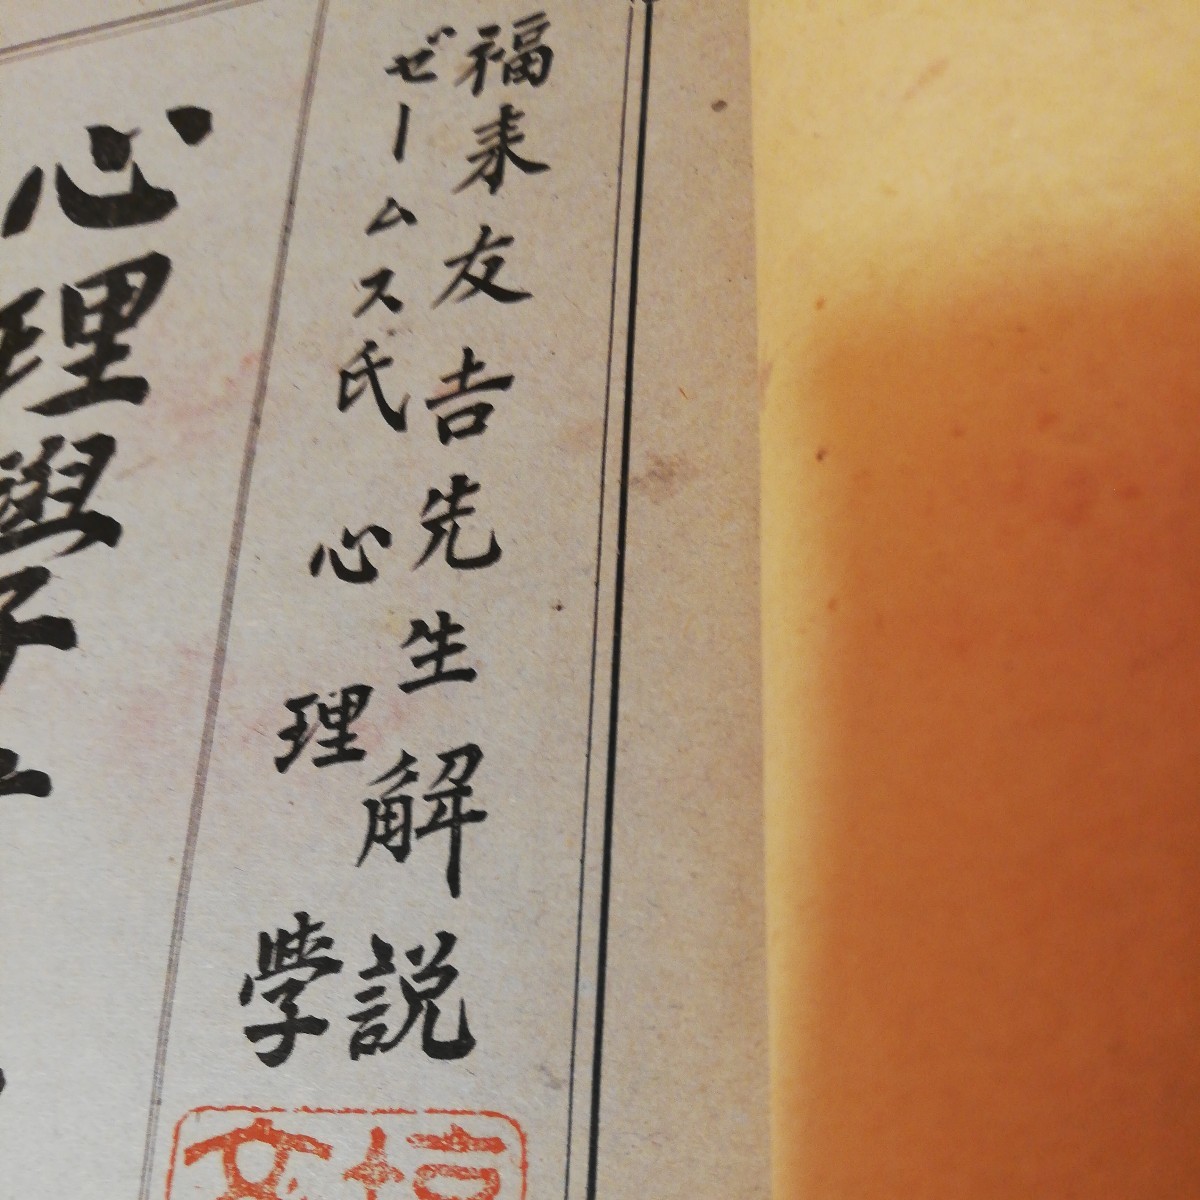 福来友吉先生解説
ゼームス氏心理学
心理學